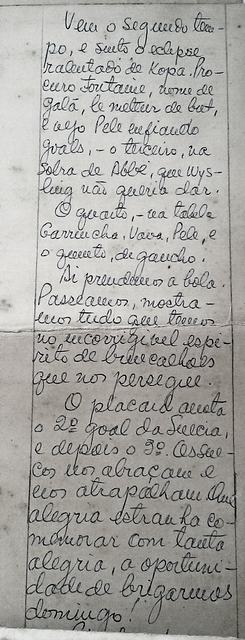 Vem o segundo tem-
po, e sinto o eclipse
ralentado de Kopa. Pro-
curo Fontaine, nome de
galã, le metteur de but,
e vejo Pelé enfiando
goals, - o terceiro, na
sobra de Abbé, que Wys-
ling não queria dar.
O quarto, - na tabela
Garrincha, Vavá, Pelé, e
o quinto, de gancho.
Aí prendemos a bola.
Passeamos, mostra-
mos tudo que temos
no incorrigível espí-
rito de brincalhões
que nos persegue.
O placard anota
o 2º goal da Suécia,
e depois o 3º. Os sue-
cos nos abraçam e
nos atrapalham.
alegria estranha co-
memorar com tanta
alegria, a oportuni-
dade de brigarmos
domingo!